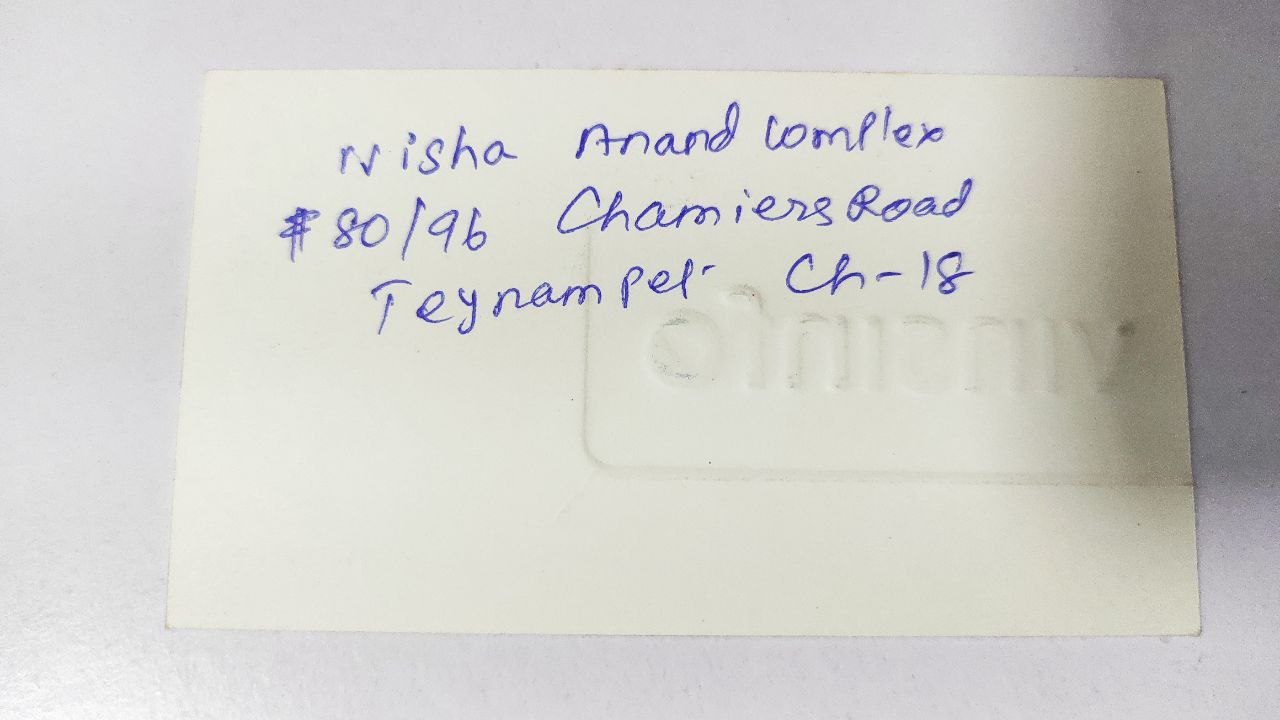 Nisha Anand Complex
#80/96 Chamiers Road
Teynampet Ch-18
vincinfo